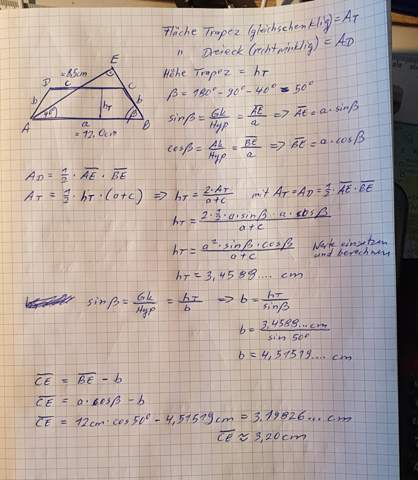 Fläche Trapez (gleichschenklig) = A_T
" Dreieck (rechtwinklig) = A_D
Höhe Trapez = h_T
β = 180° - 90° - 40° = 50°
sin β = Gk/Hyp = A̅E̅/a => A̅E̅ = a · sin β
cos β = Ak/Hyp = B̅E̅/a => B̅E̅ = a · cos β
E
D = 8,5cm
c C
b h_T b
A 40° β B
a
= 12,0cm
A_D = 1/2 · A̅E̅ · B̅E̅
A_T = 1/2 · h_T · (a+c) => h_T = 2·A_T/(a+c) mit A_T = A_D = 1/2 · A̅E̅ · B̅E̅
h_T = (2 · 1/2 · a · sin β · a · cos β)/(a+c)
h_T = (a² · sin β · cos β)/(a+c) Werte einsetzen und berechnen
h_T = 3,4588.... cm
sin β = Gk/Hyp = h_T/b => b = h_T/sin β
b = 3,4588...cm/sin 50°
b = 4,51519.... cm
C̅E̅ = B̅E̅ - b
C̅E̅ = a · cos β - b
C̅E̅ = 12cm · cos 50° - 4,51519cm = 3,19826... cm
C̅E̅ ≈ 3,20cm